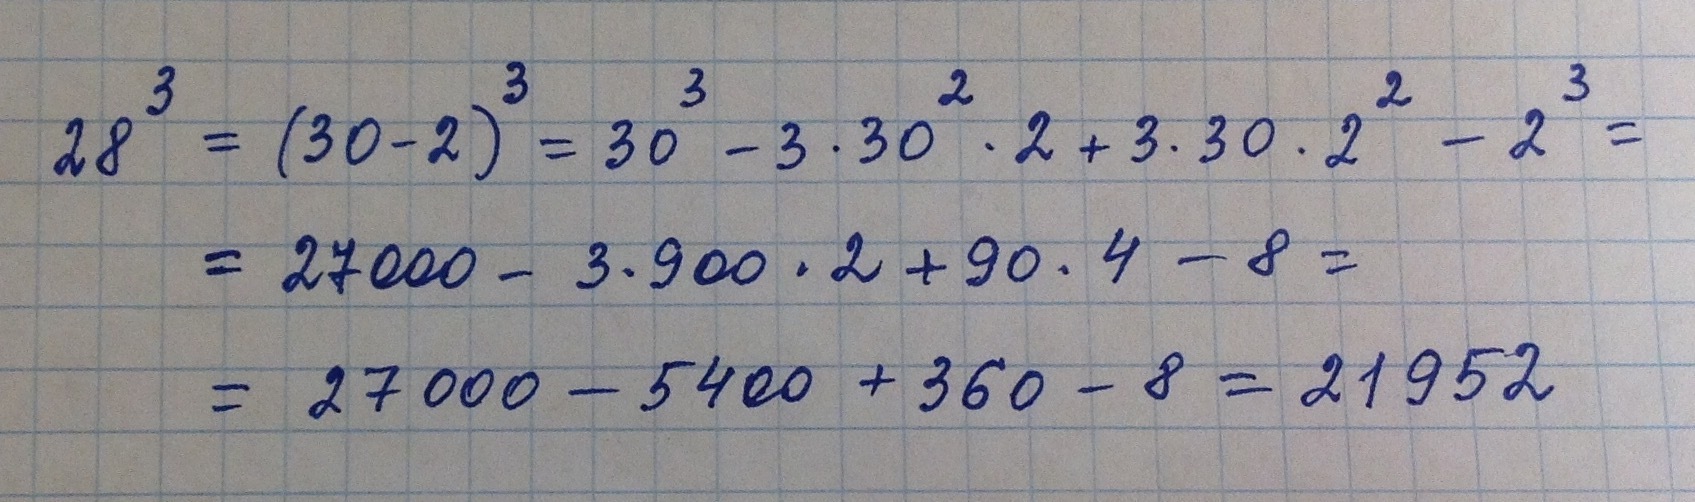 28³ = (30-2)³ = 30³ - 3·30²·2 + 3·30·2² - 2³ =
= 27000 - 3·900·2 + 90·4 - 8 =
= 27000 - 5400 + 360 - 8 = 21952